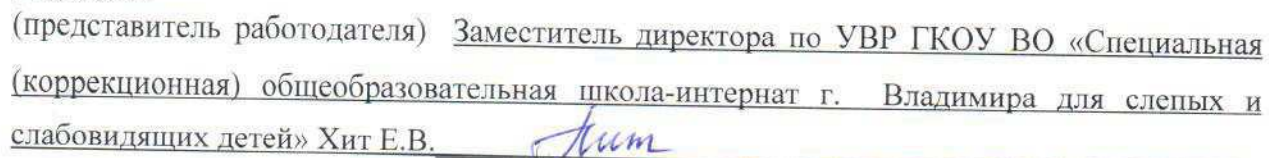 (представитель работодателя) Заместитель директора по УВР ГКОУ ВО «Специальная
(коррекционная) общеобразовательная школа-интернат г. Владимира для слепых и
слабовидящих детей» Хит Е.В. Хит